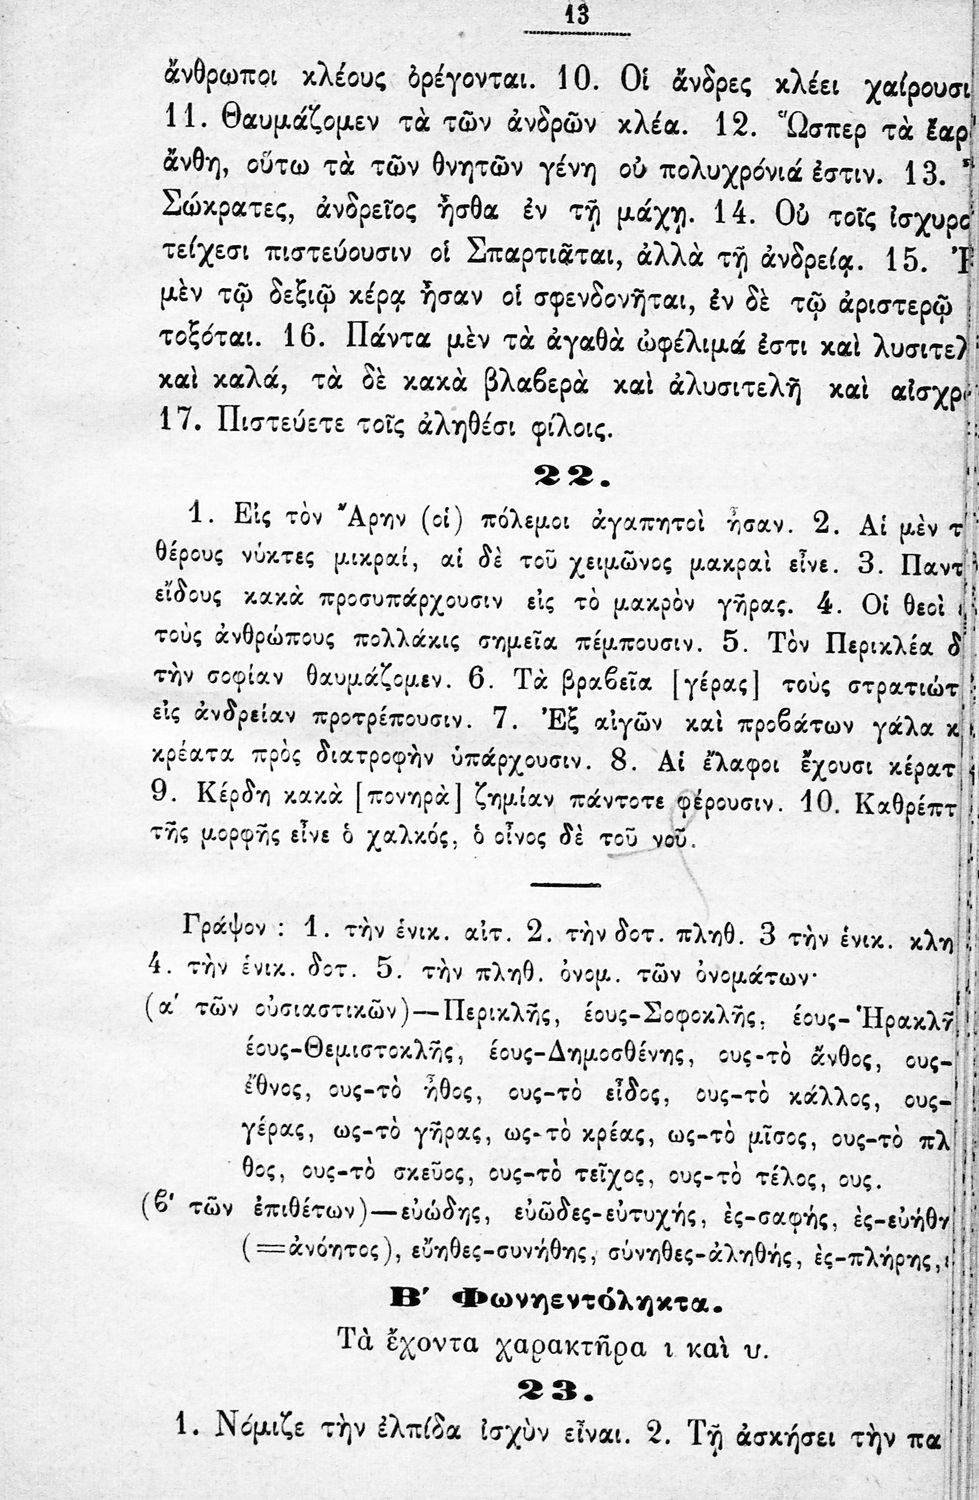 13
ἄνθρωποι κλέους ὀρέγονται. 10. Οἱ ἄνδρες κλέει χαίρουσι
11. Θαυμάζομεν τὰ τῶν ἀνδρῶν κλέα. 12. Ὥσπερ τὰ ἔαρ
ἄνθη, οὕτω τὰ τῶν θνητῶν γένη οὐ πολυχρόνιά ἐστιν. 13.
Σώκρατες, ἀνδρεῖος ἦσθα ἐν τῇ μάχῃ. 14. Οὐ τοῖς ἰσχυρο
τείχεσι πιστεύουσιν οἱ Σπαρτιᾶται, ἀλλὰ τῇ ἀνδρείᾳ. 15.
μὲν τῷ δεξιῷ κέρᾳ ἦσαν οἱ σφενδονῆται, ἐν δὲ τῷ ἀριστερῷ
τοξόται. 16. Πάντα μὲν τὰ ἀγαθὰ ὠφέλιμά ἐστι καὶ λυσιτελ
καὶ καλά, τὰ δὲ κακὰ βλαβερὰ καὶ ἀλυσιτελῆ καὶ αἰσχρ
17. Πιστεύετε τοῖς ἀληθέσι φίλοις.
22.
1. Εἰς τὸν Ἄρην (οἱ) πόλεμοι ἀγαπητοὶ ἦσαν. 2. Αἱ μὲν τ
θέρους νύκτες μικραί, αἱ δὲ τοῦ χειμῶνος μακραὶ εἶνε. 3. Παντ
εἴδους κακὰ προσυπάρχουσιν εἰς τὸ μακρὸν γῆρας. 4. Οἱ θεοὶ
τοὺς ἀνθρώπους πολλάκις σημεῖα πέμπουσιν. 5. Τὸν Περικλέα δ
τὴν σοφίαν θαυμάζομεν. 6. Τὰ βραβεῖα [γέρας] τοὺς στρατιώτ
εἰς ἀνδρείαν προτρέπουσιν. 7. Ἐξ αἰγῶν καὶ προβάτων γάλα κ
κρέατα πρὸς διατροφὴν ὑπάρχουσιν. 8. Αἱ ἔλαφοι ἔχουσι κέρατ
9. Κέρδη κακὰ [πονηρὰ] ζημίαν πάντοτε φέρουσιν. 10. Καθρέπτ
τῆς μορφῆς εἶνε ὁ χαλκός, ὁ οἶνος δὲ τοῦ νοῦ.
Γράψον : 1. τὴν ἑνικ. αἰτ. 2. τὴν δοτ. πληθ. 3 τὴν ἑνικ. κλη
4. τὴν ἑνικ. δοτ. 5. τὴν πληθ. ὀνομ. τῶν ὀνομάτων·
(α΄ τῶν οὐσιαστικῶν)—Περικλῆς, έους-Σοφοκλῆς, έους-Ἡρακλῆ
έους-Θεμιστοκλῆς, έους-Δημοσθένης, ους-τὸ ἄνθος, ους-
ἔθνος, ους-τὸ ἦθος, ους-τὸ εἶδος, ους-τὸ κάλλος, ους-
γέρας, ως-τὸ γῆρας, ως-τὸ κρέας, ως-τὸ μῖσος, ους-τὸ πλ
θος, ους-τὸ σκεῦος, ους-τὸ τεῖχος, ους-τὸ τέλος, ους.
(β΄ τῶν ἐπιθέτων)—εὐώδης, εὐῶδες-εὐτυχής, ὲς-σαφής, ὲς-εὐήθη
(=ἀνόητος), εὔηθες-συνήθης, σύνηθες-ἀληθής, ὲς-πλήρης,
Β΄ Φωνηεντόληκτα.
Τὰ ἔχοντα χαρακτῆρα ι καὶ υ.
23.
1. Νόμιζε τὴν ἐλπίδα ἰσχὺν εἶναι. 2. Τῇ ἀσκήσει τὴν πα